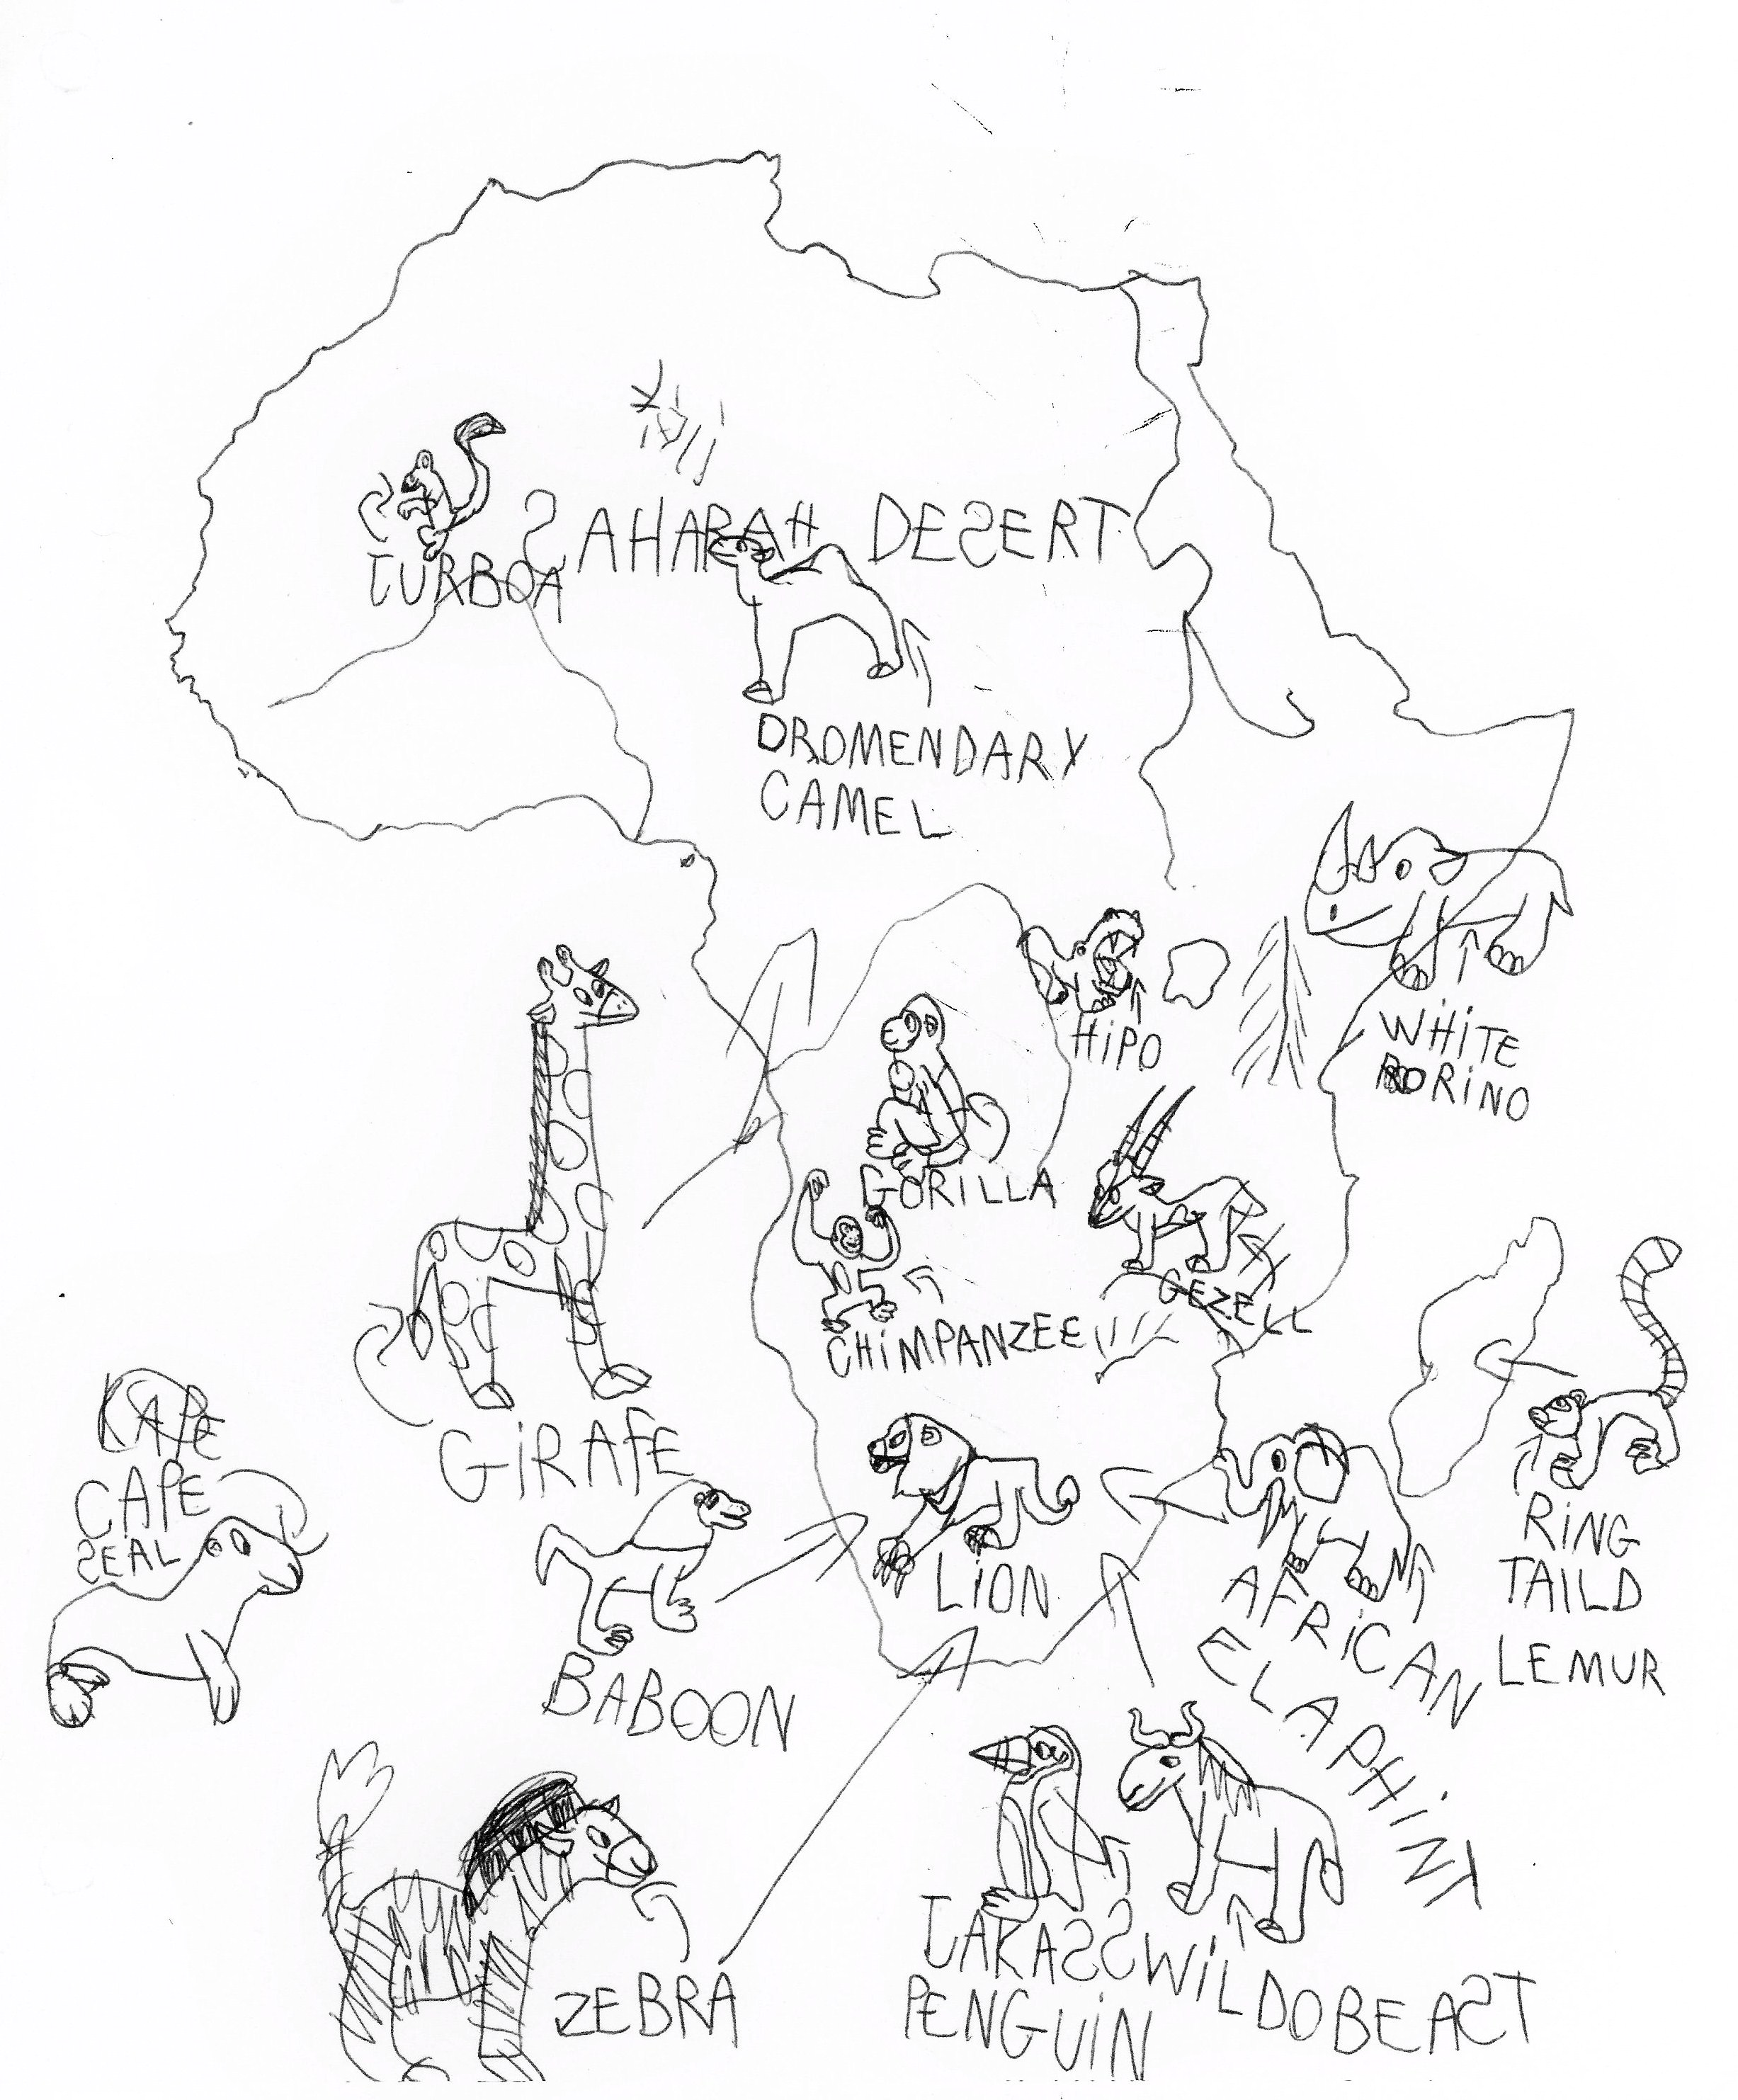 SAHARAH DESERT
JURBOA
DROMENDARY
CAMEL
HIPO
WHITE
RORINO
GORILLA
GEZELL
CHIMPANZEE
GIRAFE
KAPE
CAPE
SEAL
LION
RING
TAILD
LEMUR
AFRICAN
ELAPHINT
BABOON
ZEBRA
JAKASS
PENGUIN
WILDOBEAST